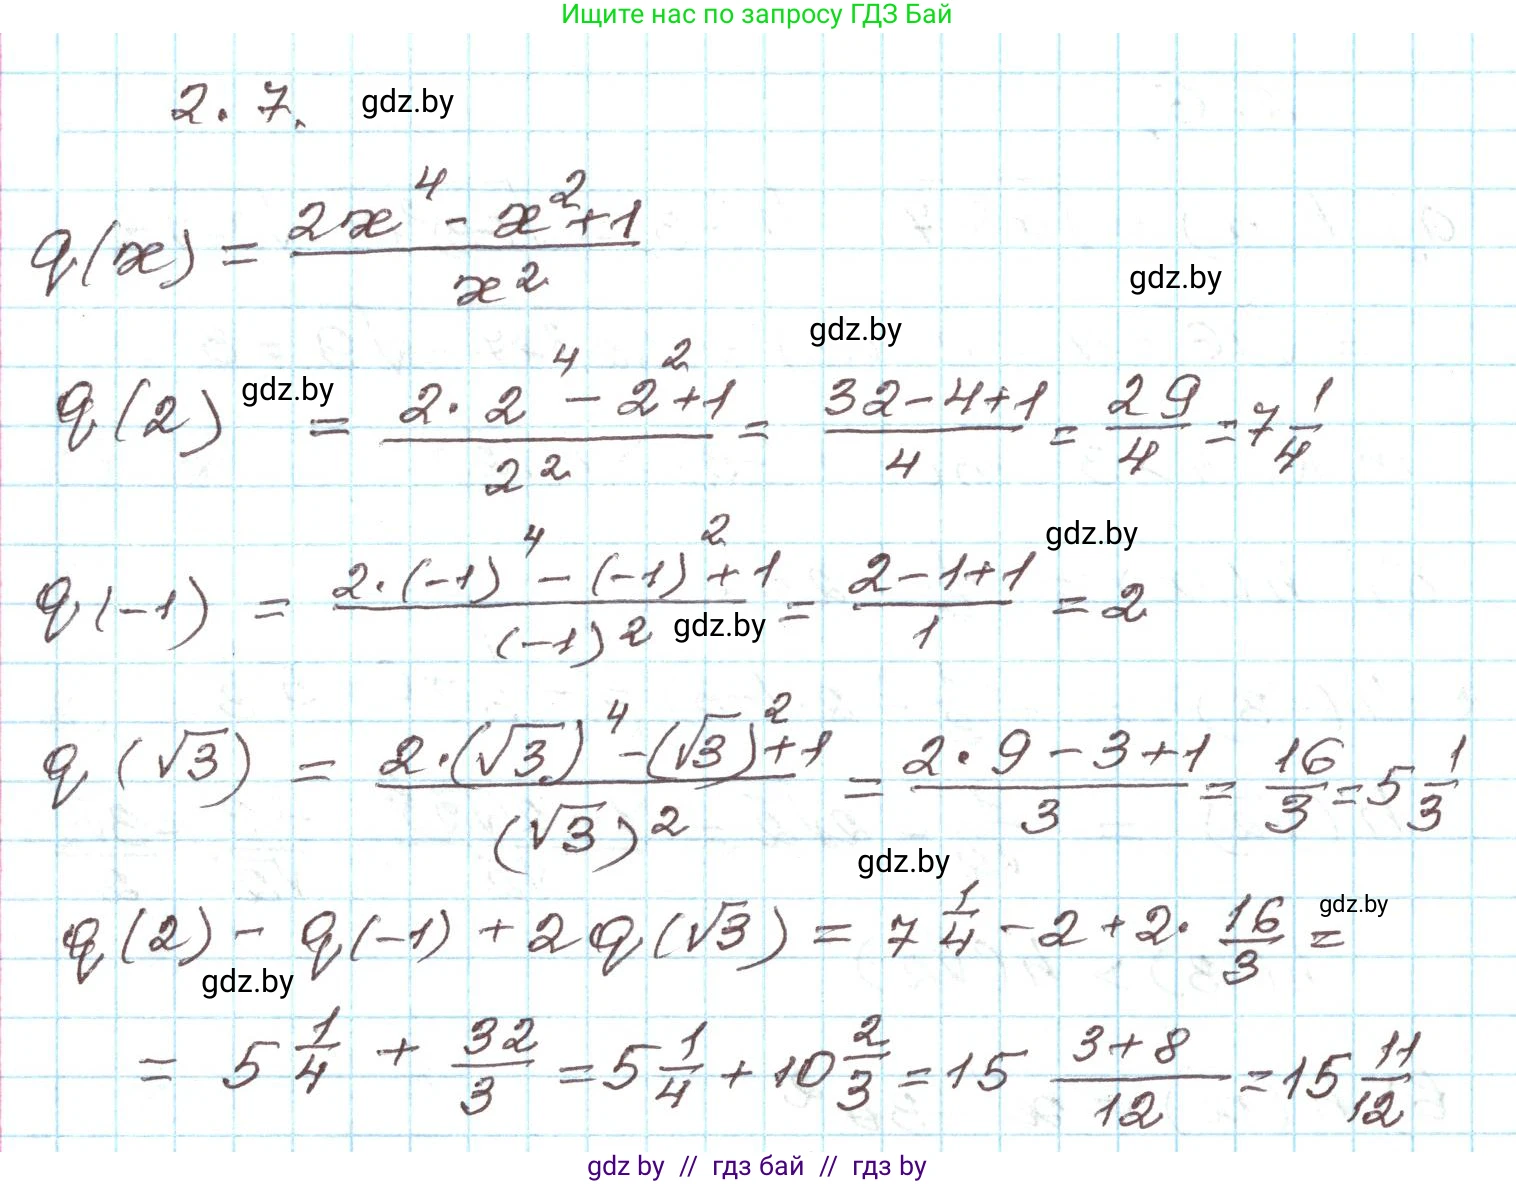 Ищите нас по запросу ГДЗ Бай
2.7. gdz.by
q(x) = (2x⁴ - x² + 1) / x²
gdz.by
gdz.by
q(2) gdz.by = (2·2⁴ - 2² + 1) / 2² = (32 - 4 + 1) / 4 = 29/4 = 7 1/4
gdz.by
q(-1) = (2·(-1)⁴ - (-1)² + 1) / (-1)² = (2 - 1 + 1) / 1 = 2
gdz.by
q(√3) = (2·(√3)⁴ - (√3)² + 1) / (√3)² = (2·9 - 3 + 1) / 3 = 16/3 = 5 1/3
gdz.by
q(2) - q(-1) + 2q(√3) = 7 1/4 - 2 + 2· 16/3 =
gdz.by
gdz.by
= 5 1/4 + 32/3 = 5 1/4 + 10 2/3 = 15 (3+8)/12 = 15 11/12
gdz by // гдз бай // гдз by